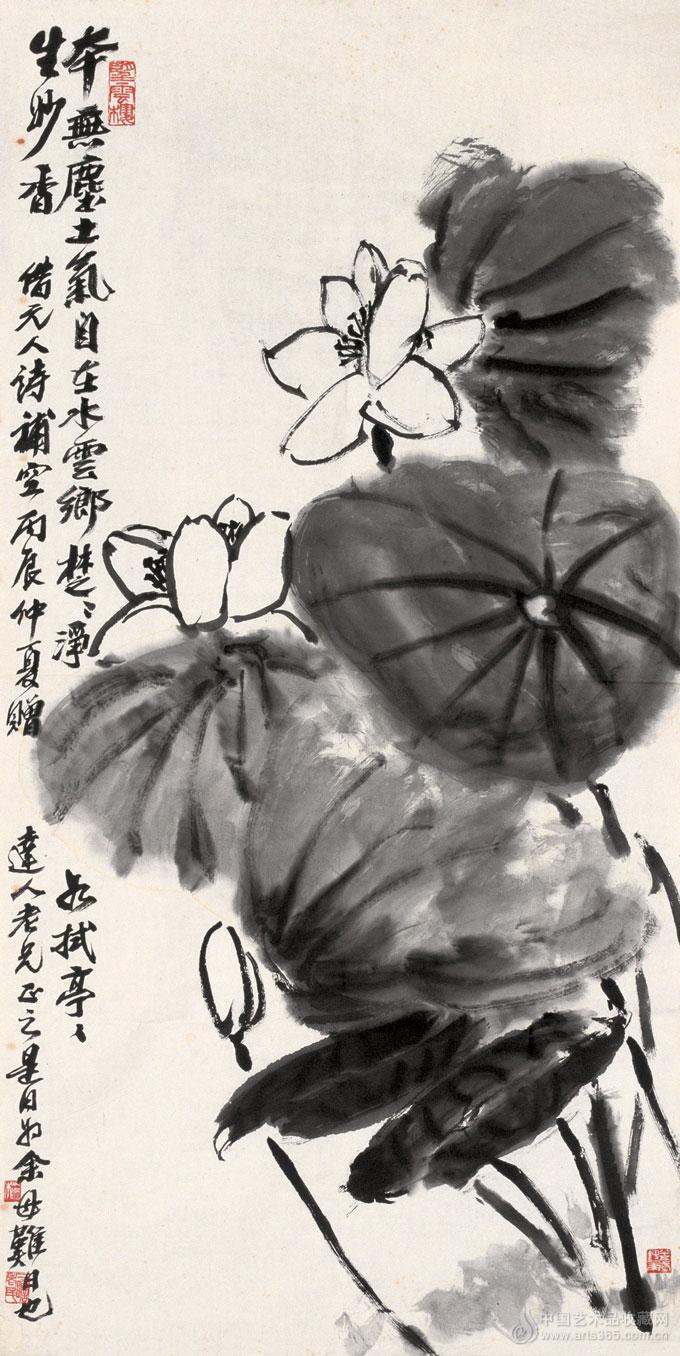 本無塵土氣自在水雲鄉楚〻淨如拭亭〻
生妙香 借元人诗補空丙辰仲夏贈達人老兄正之是日为余母難日也
中国艺术品收藏网
www.arts365.com.cn